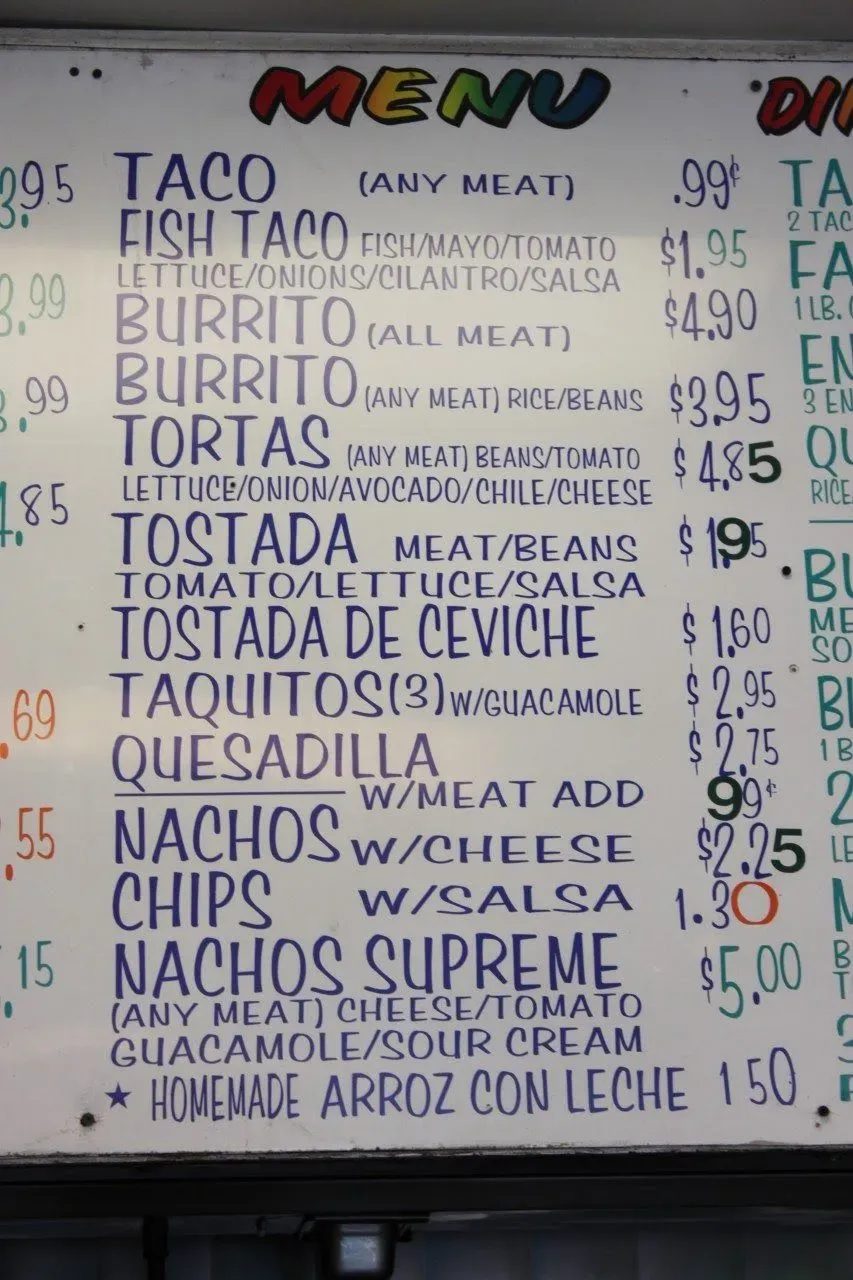 MENU
TACO (ANY MEAT) .99¢
FISH TACO FISH/MAYO/TOMATO $1.95
LETTUCE/ONIONS/CILANTRO/SALSA
BURRITO (ALL MEAT) $4.90
BURRITO (ANY MEAT) RICE/BEANS $3.95
TORTAS (ANY MEAT) BEANS/TOMATO $4.85
LETTUCE/ONION/AVOCADO/CHILE/CHEESE
TOSTADA MEAT/BEANS $1.95
TOMATO/LETTUCE/SALSA
TOSTADA DE CEVICHE $1.60
TAQUITOS(3) W/GUACAMOLE $2.95
QUESADILLA $2.75
W/MEAT ADD 99¢
NACHOS W/CHEESE $2.25
CHIPS W/SALSA 1.30
NACHOS SUPREME $5.00
(ANY MEAT) CHEESE/TOMATO
GUACAMOLE/SOUR CREAM
★ HOMEMADE ARROZ CON LECHE 150